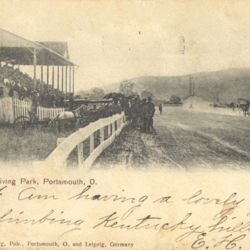 iving Park, Portsmouth, O.
I am having a lovely
climbing Kentucky hills
C. H.
g, Pub., Portsmouth, O. and Leipzig, Germany